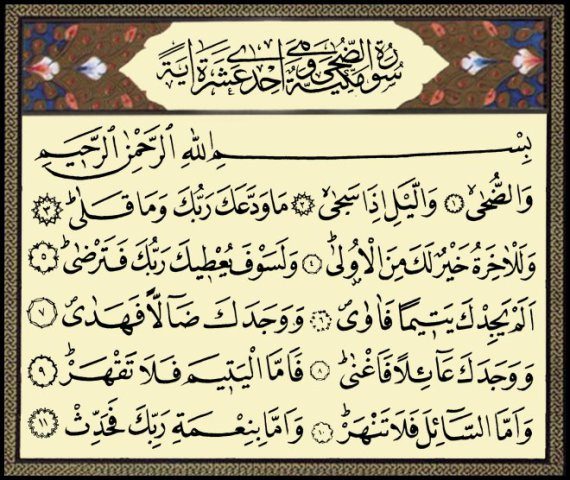 سورة الضحى مكية وهى احدى عشرة اية
بِسْمِ اللهِ الرَّحْمٰنِ الرَّحِيمِ
وَالضُّحٰىۙ ﴿١﴾ وَالَّيْلِ اِذَا سَجٰىۙ ﴿٢﴾ مَا وَدَّعَكَ رَبُّكَ وَمَا قَلٰىۜ ﴿٣﴾
وَلَلْاٰخِرَةُ خَيْرٌ لَكَ مِنَ الْاُو۫لٰىۜ ﴿٤﴾ وَلَسَوْفَ يُعْطِيكَ رَبُّكَ فَتَرْضٰىۜ ﴿٥﴾
اَلَمْ يَجِدْكَ يَتِيمًا فَاٰوٰىۖ ﴿٦﴾ وَوَجَدَكَ ضَٓالًّا فَهَدٰىۖ ﴿٧﴾
وَوَجَدَكَ عَٓائِلًا فَاَغْنٰىۜ ﴿٨﴾ فَاَمَّا الْيَتِيمَ فَلَا تَقْهَرْۜ ﴿٩﴾
وَاَمَّا السَّٓائِلَ فَلَا تَنْهَرْۜ ﴿١٠﴾ وَاَمَّا بِنِعْمَةِ رَبِّكَ فَحَدِّثْ ﴿١١﴾